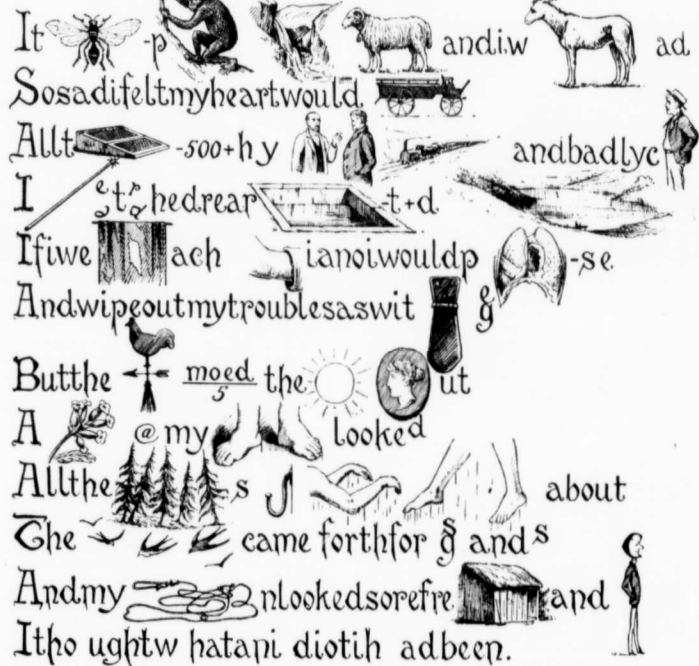 It -p and i.w ad.
Sosadifeltmyheartwould
Allt -500+hy andbadlyc
I st&hedrear -t+d
Ifiwe ach ianoiwouldp -se
Andwipeoutmytroublesaswit g
Butthe moed/5 the ut
A @ my looked
Allthe s about
The came forthfor g and s
Andmy nlookedsorefre and
Itho ughtw hatani diotih adbeen.